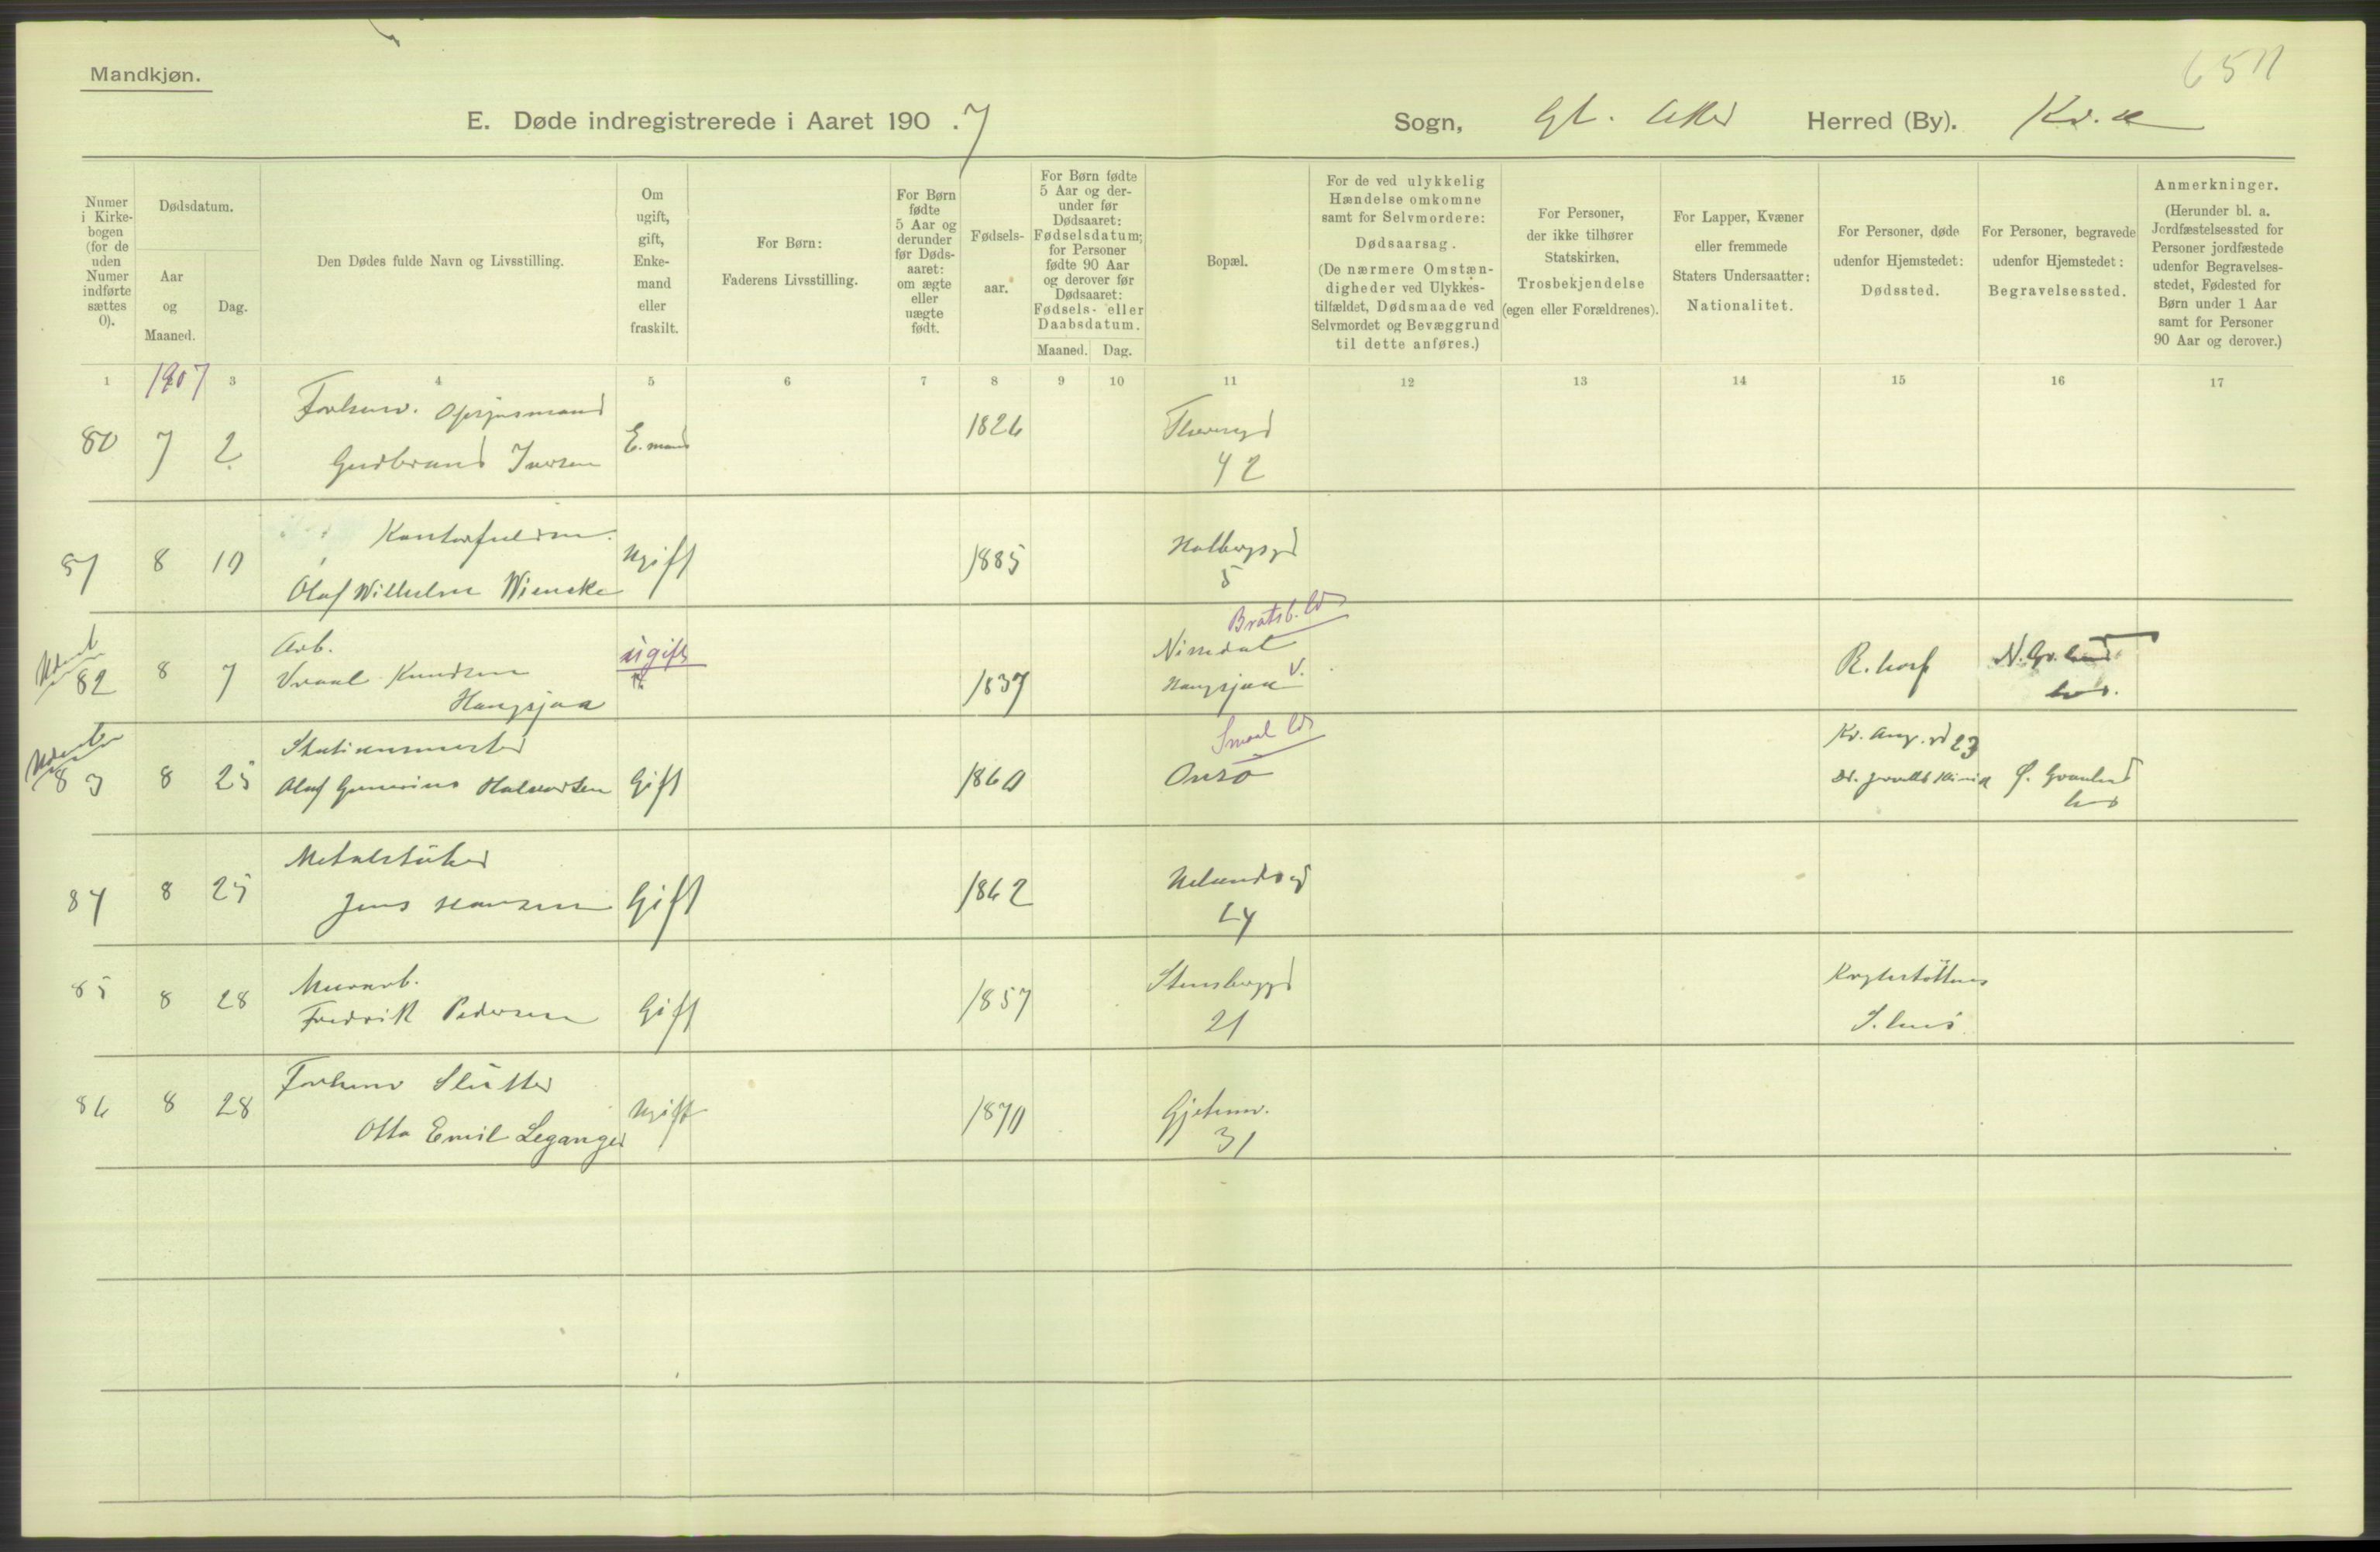 Mandkjøn.
E. Døde indregistrerede i Aaret 190.7
Sogn, Gl. Aker
Herred (By). Kr.a
Numer i Kirkebogen (for de uden Numer indførte sættes 0).
Dødsdatum.
Aar og Maaned.
Dag.
Den Dødes fulde Navn og Livsstilling.
Om ugift, gift, Enkemand eller fraskilt.
For Børn: Faderens Livsstilling.
For Børn fødte 5 Aar og derunder før Dødsaaret: om ægte eller uægte født.
Fødselsaar.
For Børn fødte 5 Aar og derunder før Dødsaaret: Fødselsdatum; for Personer fødte 90 Aar og derover før Dødsaaret: Fødsels- eller Daabsdatum.
Maaned. Dag.
Bopæl.
For de ved ulykkelig Hændelse omkomne samt for Selvmordere: Dødsaarsag.
(De nærmere Omstændigheder ved Ulykkestilfældet, Dødsmaade ved Selvmordet og Bevæggrund til dette anføres.)
For Personer, der ikke tilhører Statskirken, Trosbekjendelse (egen eller Forældrenes).
For Lapper, Kvæner eller fremmede Staters Undersaatter: Nationalitet.
For Personer, døde udenfor Hjemstedet: Dødssted.
For Personer, begravede udenfor Hjemstedet: Begravelsessted.
Anmerkninger.
(Herunder bl. a. Jordfæstelsessted for Personer jordfæstede udenfor Begravelsesstedet, Fødested for Børn under 1 Aar samt for Personer 90 Aar og derover.)
1 1907 3 4 5 6 7 8 9 10 11 12 13 14 15 16 17
Forhenv. Opsynsmand
80 7 2 Gudbrand Iversen E.mand 1826
42
8 10 Olaf Wilhelm Ugift 1885
5
Bratsb.
Arb.
82 8 7 Vraal Knudsen ugift 1837 Nissedal
Haugsjaa Haugsjaa V.
R.hosp
Smaal
Stationsmester
83 8 25 Olaf Gunerius Halvorsen Gift 1860 Onsø
23
Metalstøber
84 8 25 Jens Hansen Gift 1862
Murarb.
85 8 28 Fredrik Pedersen Gift 1857 Stensberggd
21
Forhenv Slagter
86 8 28 Otto Emil Leganger Ugift 1870
31